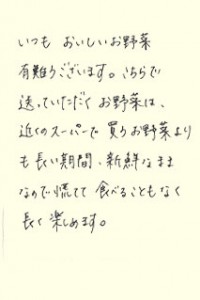 いつも おいしいお野菜
有難うございます。こちらで
送っていただくお野菜は、
近くのスーパーで買うお野菜より
も長い期間、新鮮なまま
なので慌てて食べることもなく
長く楽しめます。